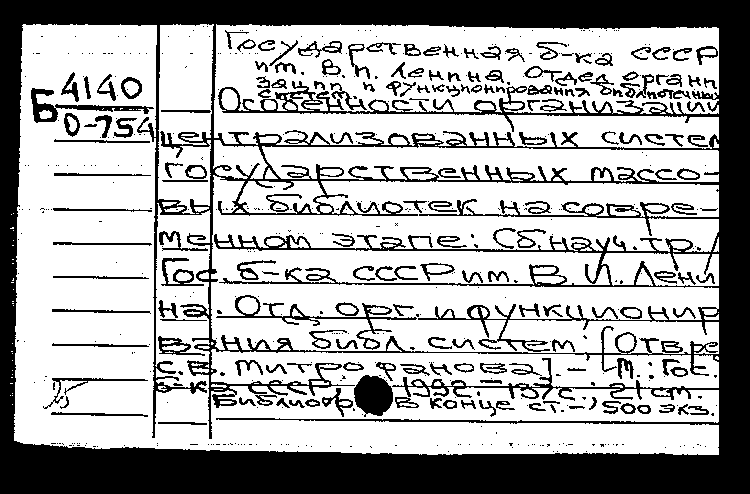 Государственная б-ка СССР
им. В. И. Ленина. Отдел органи
зации и функционирования библиотечных
систем.
Б 4140
О-754
Особенности организации
централизованных систем
государственных массо-
вых библиотек на совре-
менном этапе: Сб. науч. тр. /
Гос. б-ка СССР им. В. И. Лени
на. Отд. орг. и функционир
вания библ. систем; [Отв. ре
С.В. Митрофанова]. - М.: Гос.
б-ка СССР, 1992. - 137с.; 21 см. -
Библиогр. в конце ст. -, 500 экз.